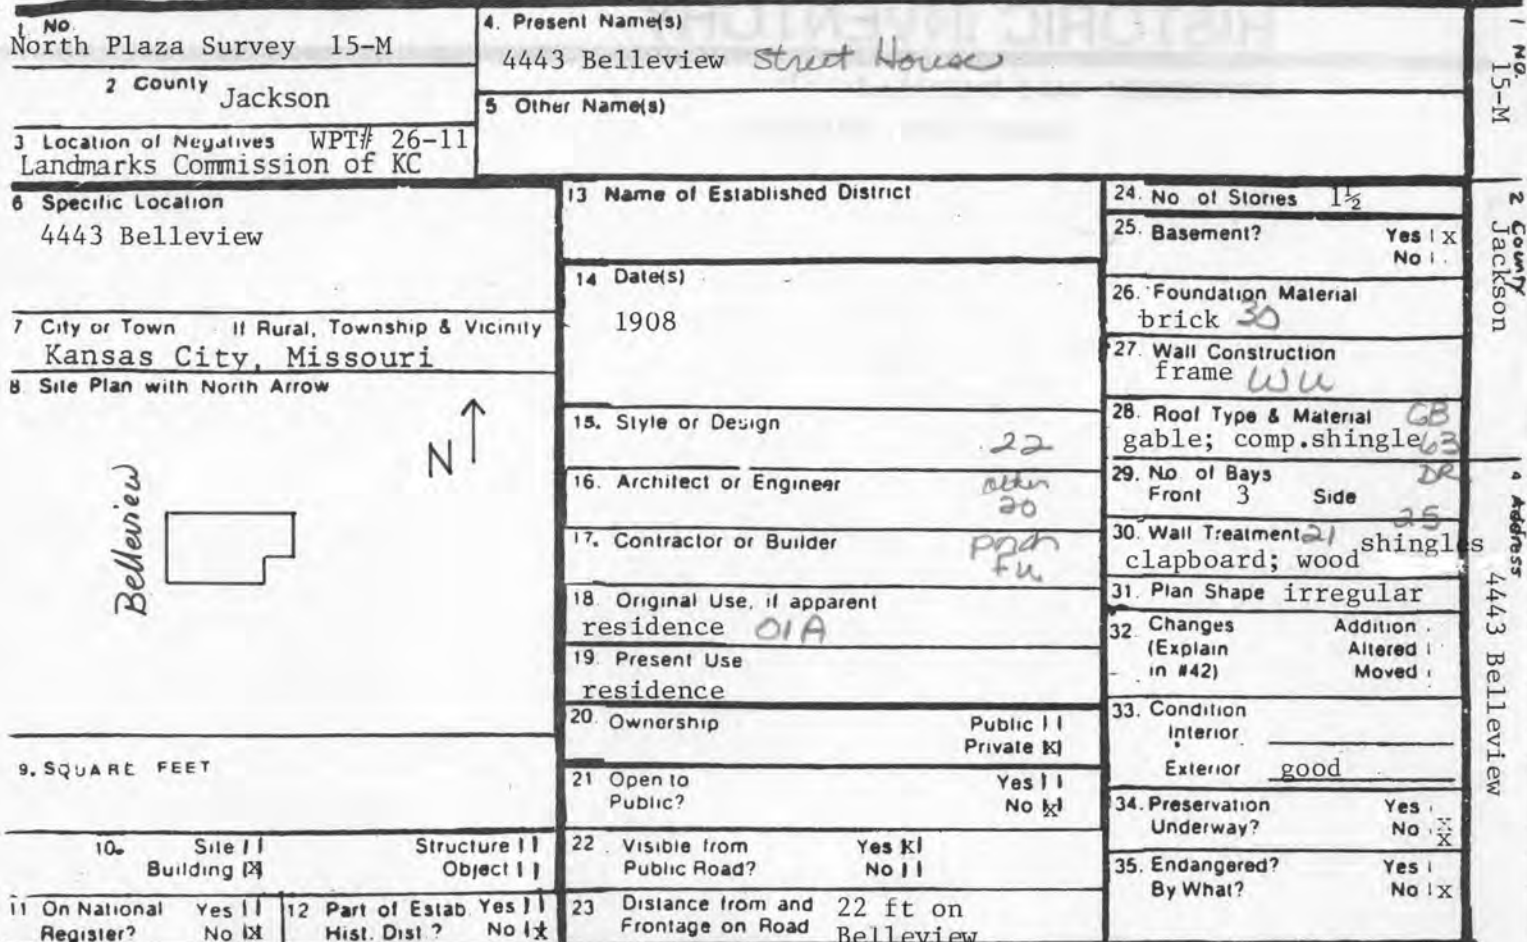 1. No.
North Plaza Survey 15-M
2 County Jackson
3 Location of Negatives WPT# 26-11
Landmarks Commission of KC
4. Present Name(s)
4443 Belleview Street House
5 Other Name(s)
6 Specific Location
4443 Belleview
7 City or Town If Rural, Township & Vicinity
Kansas City, Missouri
8. Site Plan with North Arrow
N
Belleview
9. SQUARE FEET
10. Site Structure
Building X Object
11 On National Register? Yes No X
12 Part of Estab. Hist. Dist.? Yes No X
13 Name of Established District
14 Date(s)
1908
15. Style or Design
22
16. Architect or Engineer
other
20
17. Contractor or Builder
porch
Fu
18. Original Use, if apparent
residence 01A
19. Present Use
residence
20. Ownership Public
Private X
21 Open to Yes
Public? No X
22. Visible from Yes X
Public Road? No
23 Distance from and 22 ft on
Frontage on Road Belleview
24. No of Stories 1½
25. Basement? Yes x
No
26. Foundation Material
brick 30
27. Wall Construction
frame WU
28. Roof Type & Material GB
gable; comp.shingle 63
29. No. of Bays DR
Front 3 Side
25
30. Wall Treatment 21 shingles
clapboard; wood
31. Plan Shape irregular
32. Changes Addition
(Explain Altered
in #42) Moved
33. Condition
Interior
Exterior good
34. Preservation Yes
Underway? No X
35. Endangered? Yes
By What? No x
1 No.
15-M
2 County
Jackson
4 Address
4443 Belleview